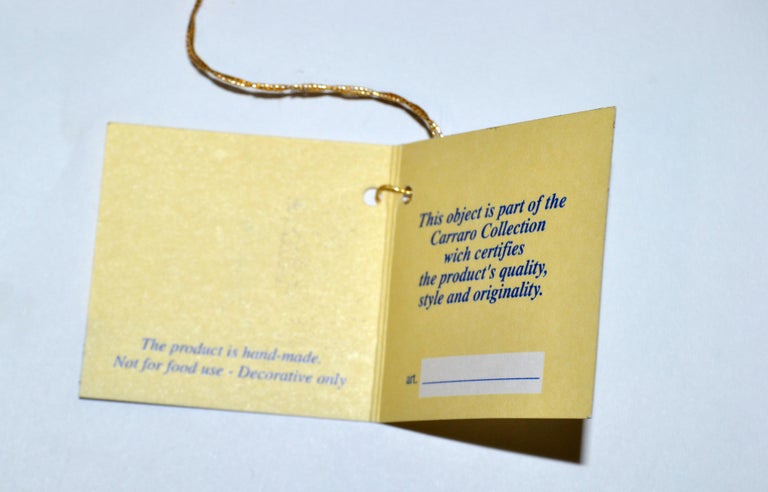 The product is hand-made.
Not for food use - Decorative only
This object is part of the
Carraro Collection
wich certifies
the product's quality,
style and originality.
art.